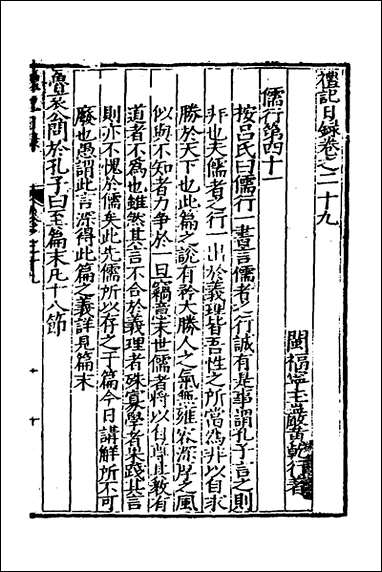 禮記日錄卷之二十九
閩福寧玉巖黃乾行著
儒行第四十一
按呂氏曰儒行一書言儒者之行誠有是事謂孔子言之則
非也夫儒者之行一出於義理皆吾性之所當為非以自求
勝於天下也此篇之說有矜大勝人之氣無雍容深厚之風
似與不知者力爭於一旦竊意末世儒者將以自尊此教有
道者不為也雖然其言不合於義理者殊寡學者果踐此言
則亦不愧於儒矣此先儒所以存之于篇今日講解所不可
廢也愚謂此言深得此篇之義詳見篇末
魯哀公問於孔子曰至篇末凡十八節